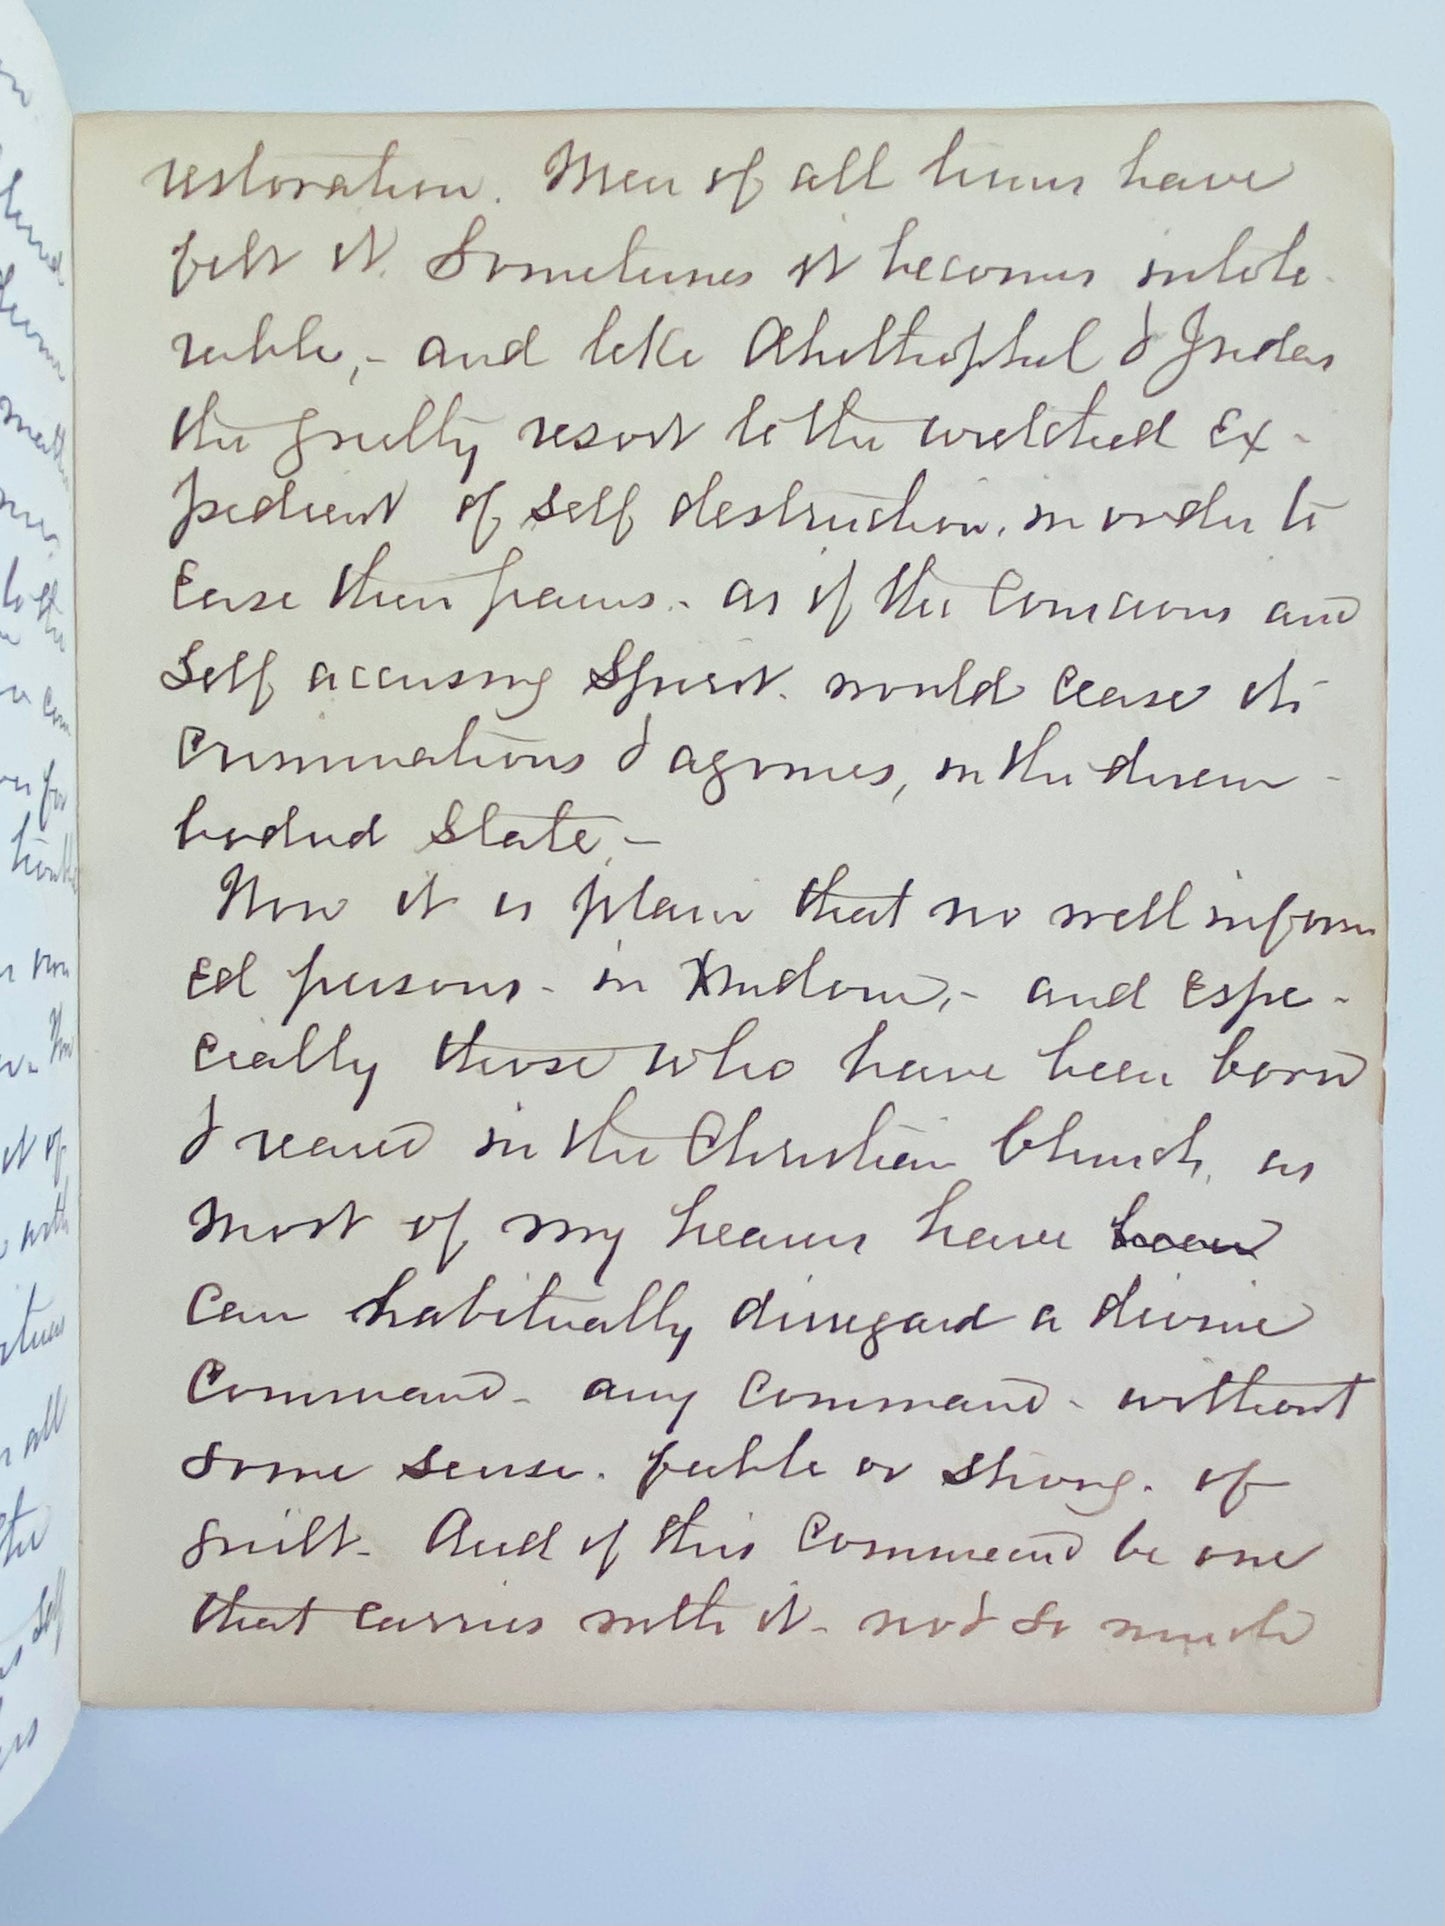 restoration. Men of all times have
felt it. Sometimes it becomes intole-
rable,- and like Ahithophel & Judas
the guilty resort to the wretched ex-
pedient of self destruction, in order to
ease their pains - as if the conscious and
self accusing spirit would cease its
criminations & agonies, in the disem-
bodied state.-
Now it is plain that no well inform
ed persons - in Xndom,- and espe-
cially those who have been born
& reared in the Christian Church, as
most of my hearers have been
can habitually disregard a divine
command - any command - without
some sense. feeble or strong. of
guilt - And if this command be one
that carries with it - not so much
all